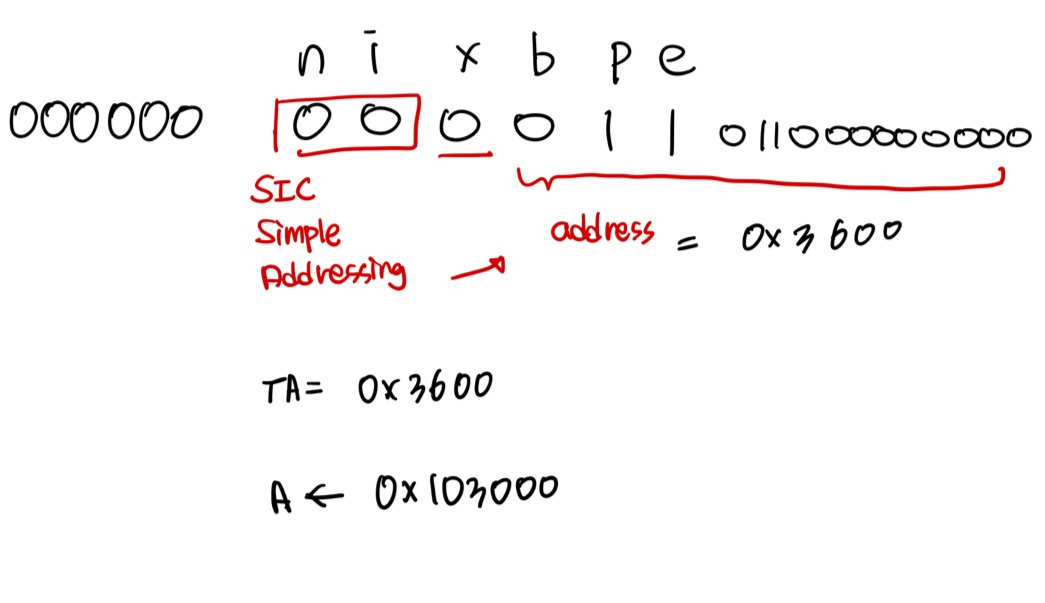 n i x b p e
000000 0 0 0 0 1 1 011000000000
SIC
Simple
Addressing → address = 0x3600
TA = 0x3600
A ← 0x103000